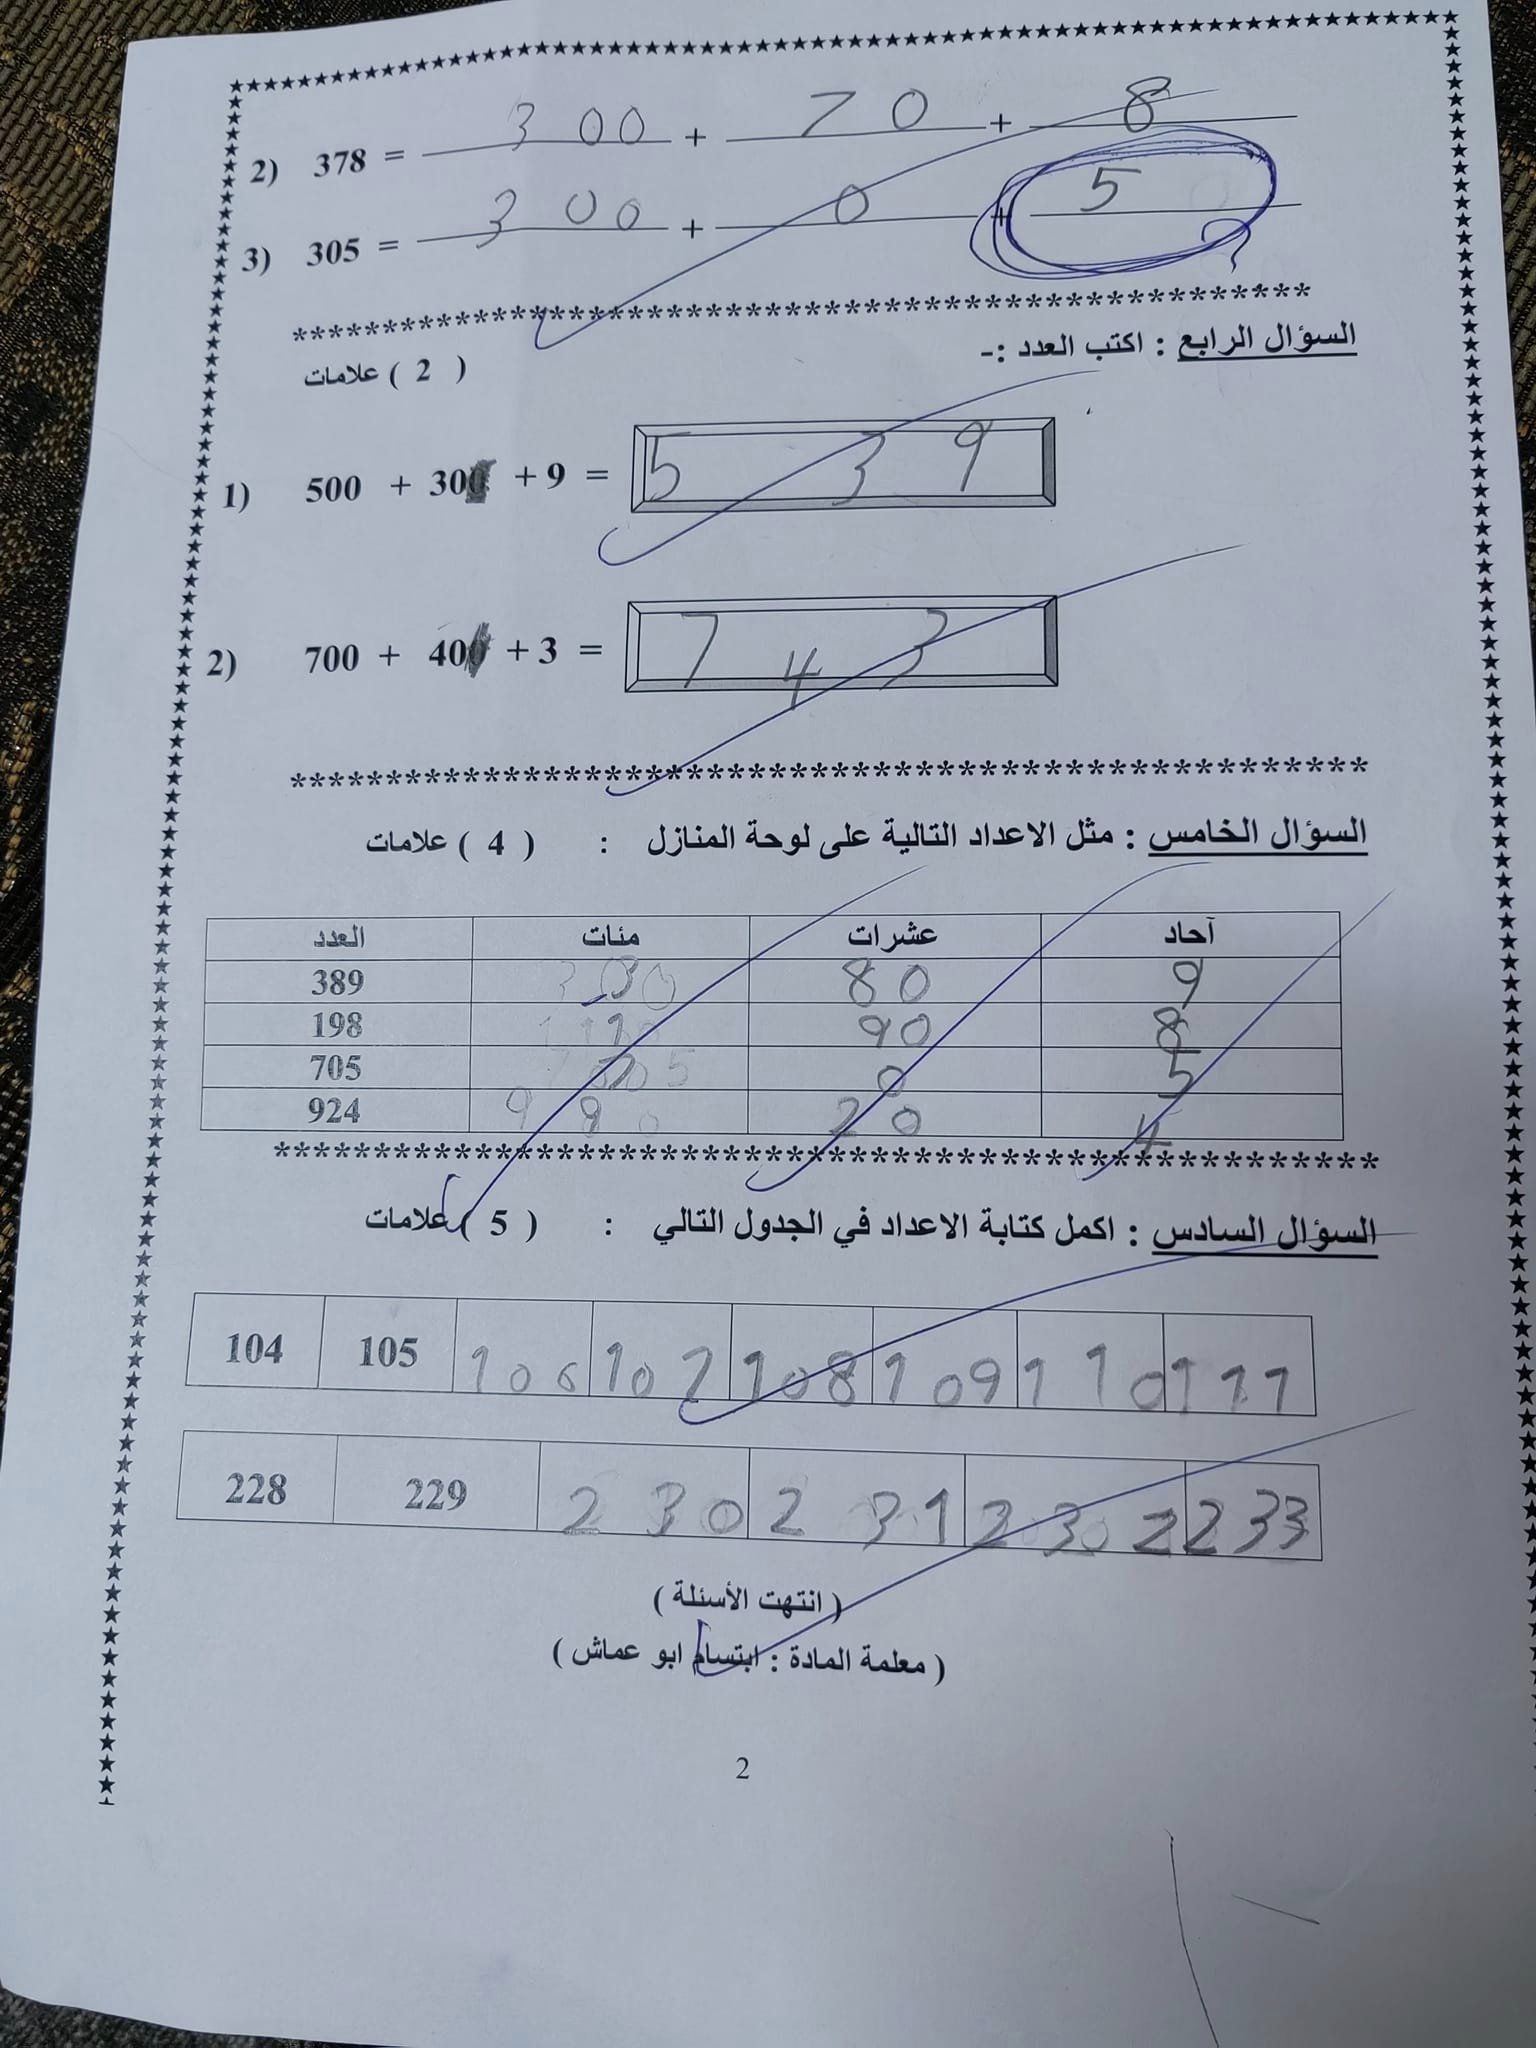 2) 378 = 300 + 70 + 8
3) 305 = 300 + 0 + 5
السؤال الرابع : اكتب العدد :-
( 2 ) علامات
1) 500 + 30 + 9 = 5 3 9
2) 700 + 40 + 3 = 7 4 3
السؤال الخامس : مثل الاعداد التالية على لوحة المنازل : ( 4 ) علامات
العدد مئات عشرات آحاد
389 80 9
198 1 90 8
705 7 0 5
924 9 20 4
السؤال السادس : اكمل كتابة الاعداد في الجدول التالي : ( 5 ) علامات
104 105 106 107 108 109 110 111
228 229 230 231 232 233
( انتهت الأسئلة )
( معلمة المادة : ابتسام ابو عماش )
2